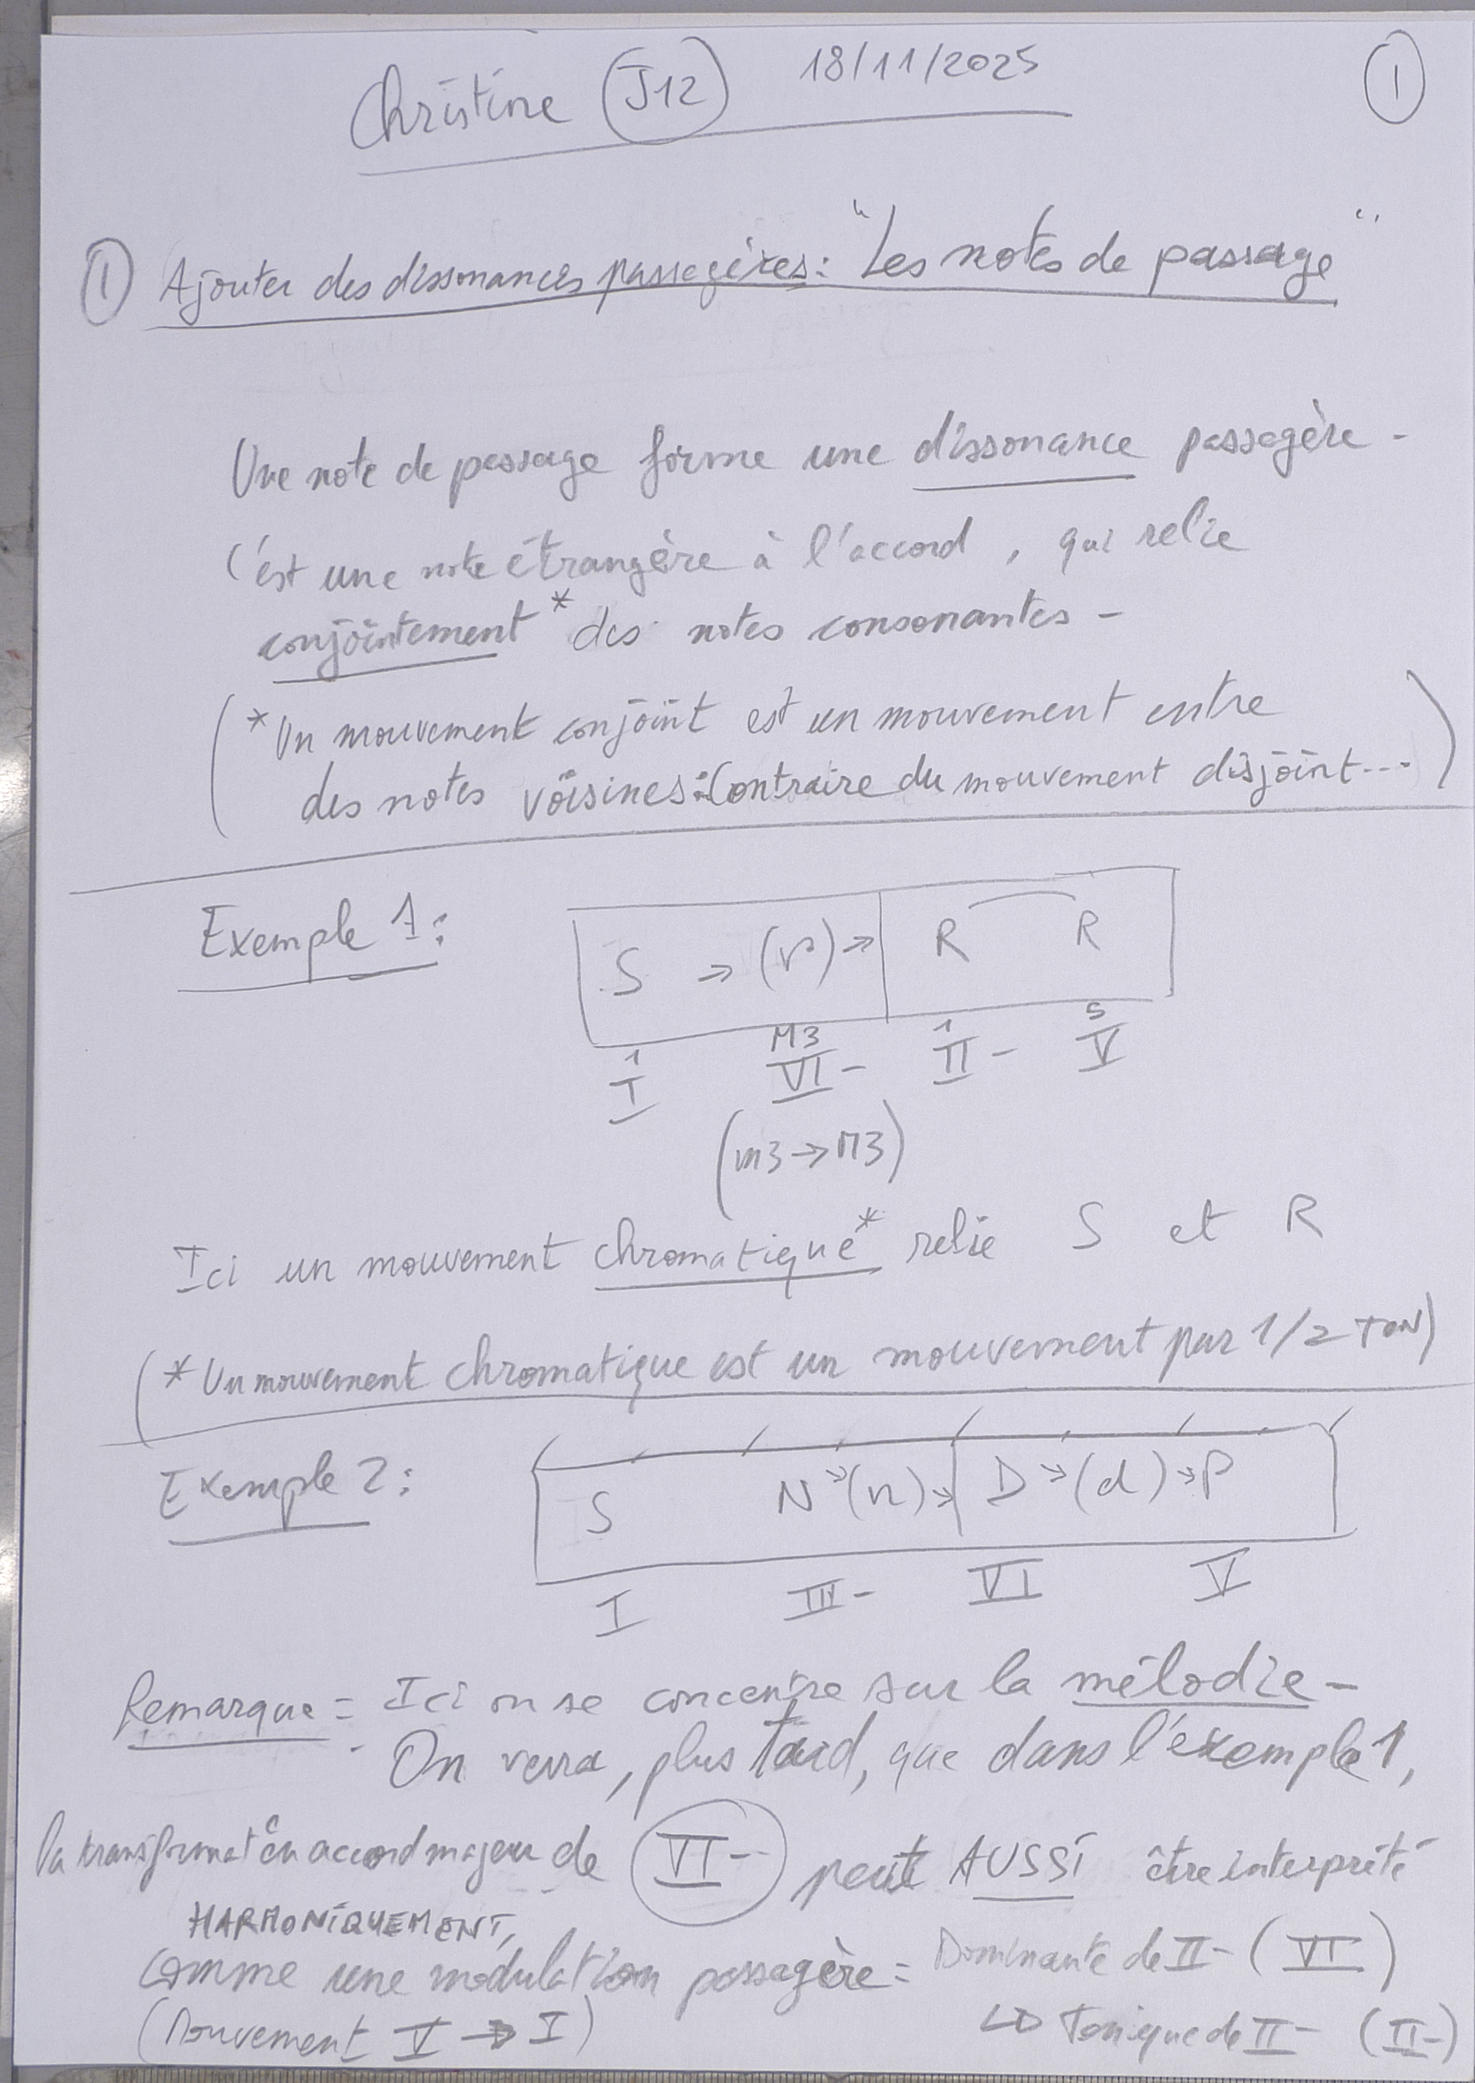 Christine J12 18/11/2025 1
1 Ajouter des dissonances passagères : "Les notes de passage"
Une note de passage forme une dissonance passagère -
C'est une note étrangère à l'accord, qui relie
conjointement* des notes consonantes -
(*Un mouvement conjoint est un mouvement entre
des notes voisines : Contraire du mouvement disjoint...)
Exemple 1 :
S → (r) → R R
1 M3 1 5
I VI- II- V
(m3 → M3)
Ici un mouvement chromatique* relie S et R
(*Un mouvement chromatique est un mouvement par 1/2 TON)
Exemple 2 :
S N → (n) → D → (d) → P
I III- VI V
Remarque = Ici on se concentre sur la mélodie -
On verra, plus tard, que dans l'exemple 1,
la transformat° en accord majeur de VI- peut AUSSI être interprété
HARMONIQUEMENT,
comme une modulation passagère = Dominante de II- (VI)
(Mouvement V → I) ↳ Tonique de II- (II-)